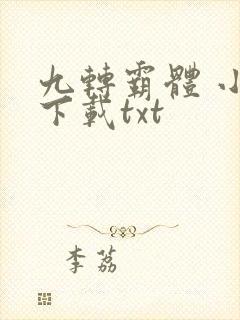 九轉霸體 小
下載txt
李荔